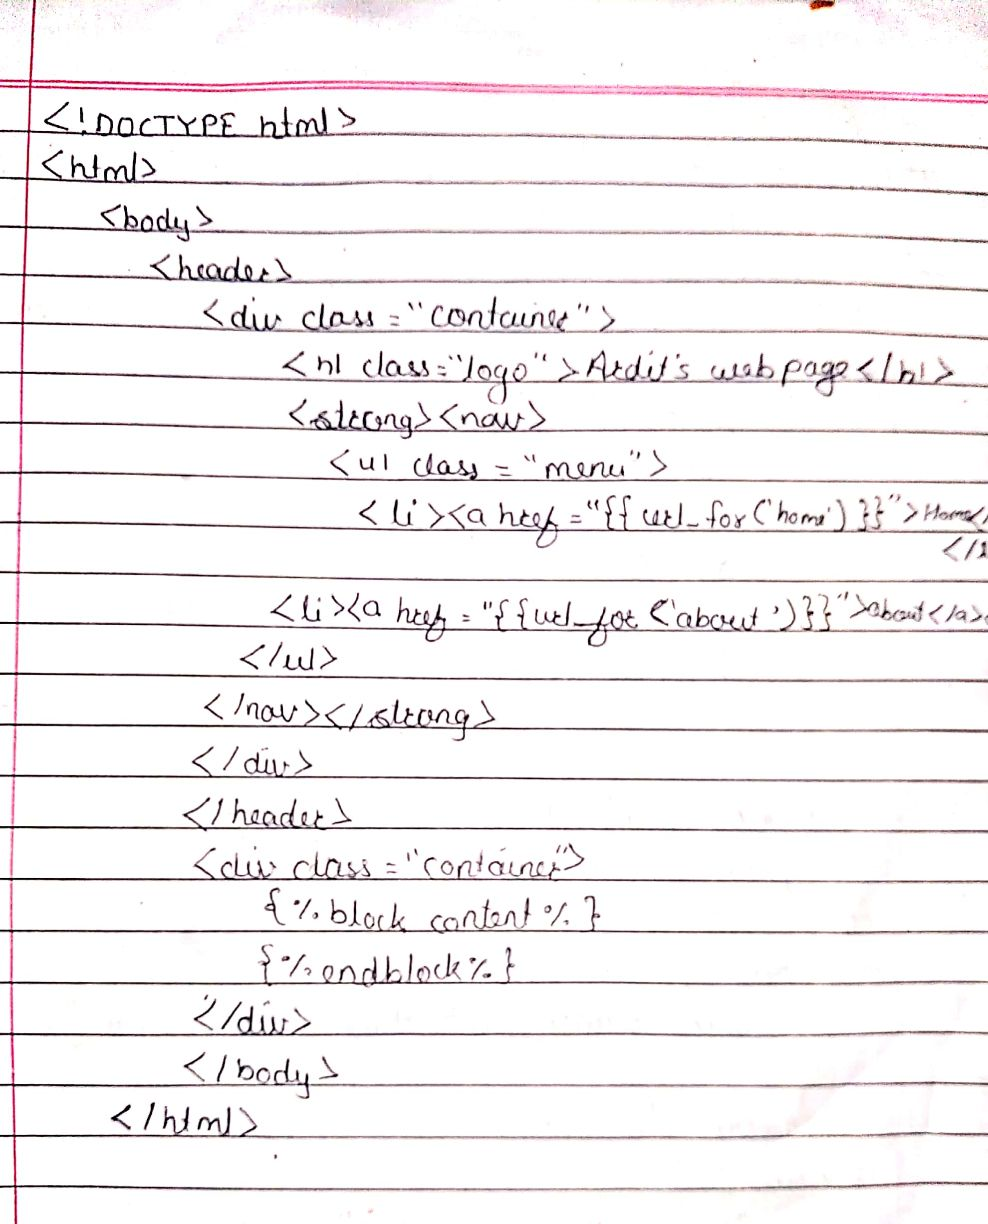 <!DOCTYPE html>
<html>
<body>
<header>
<div class="container">
<h1 class="logo">Ardit's web page</h1>
<strong><nav>
<ul class="menu">
<li><a href="{{url_for('home')}}">Home</
</
<li><a href="{{url_for('about')}}">about</a>
</ul>
</nav></strong>
</div>
</header>
<div class="container">
{%block content%}
{%endblock%}
</div>
</body>
</html>